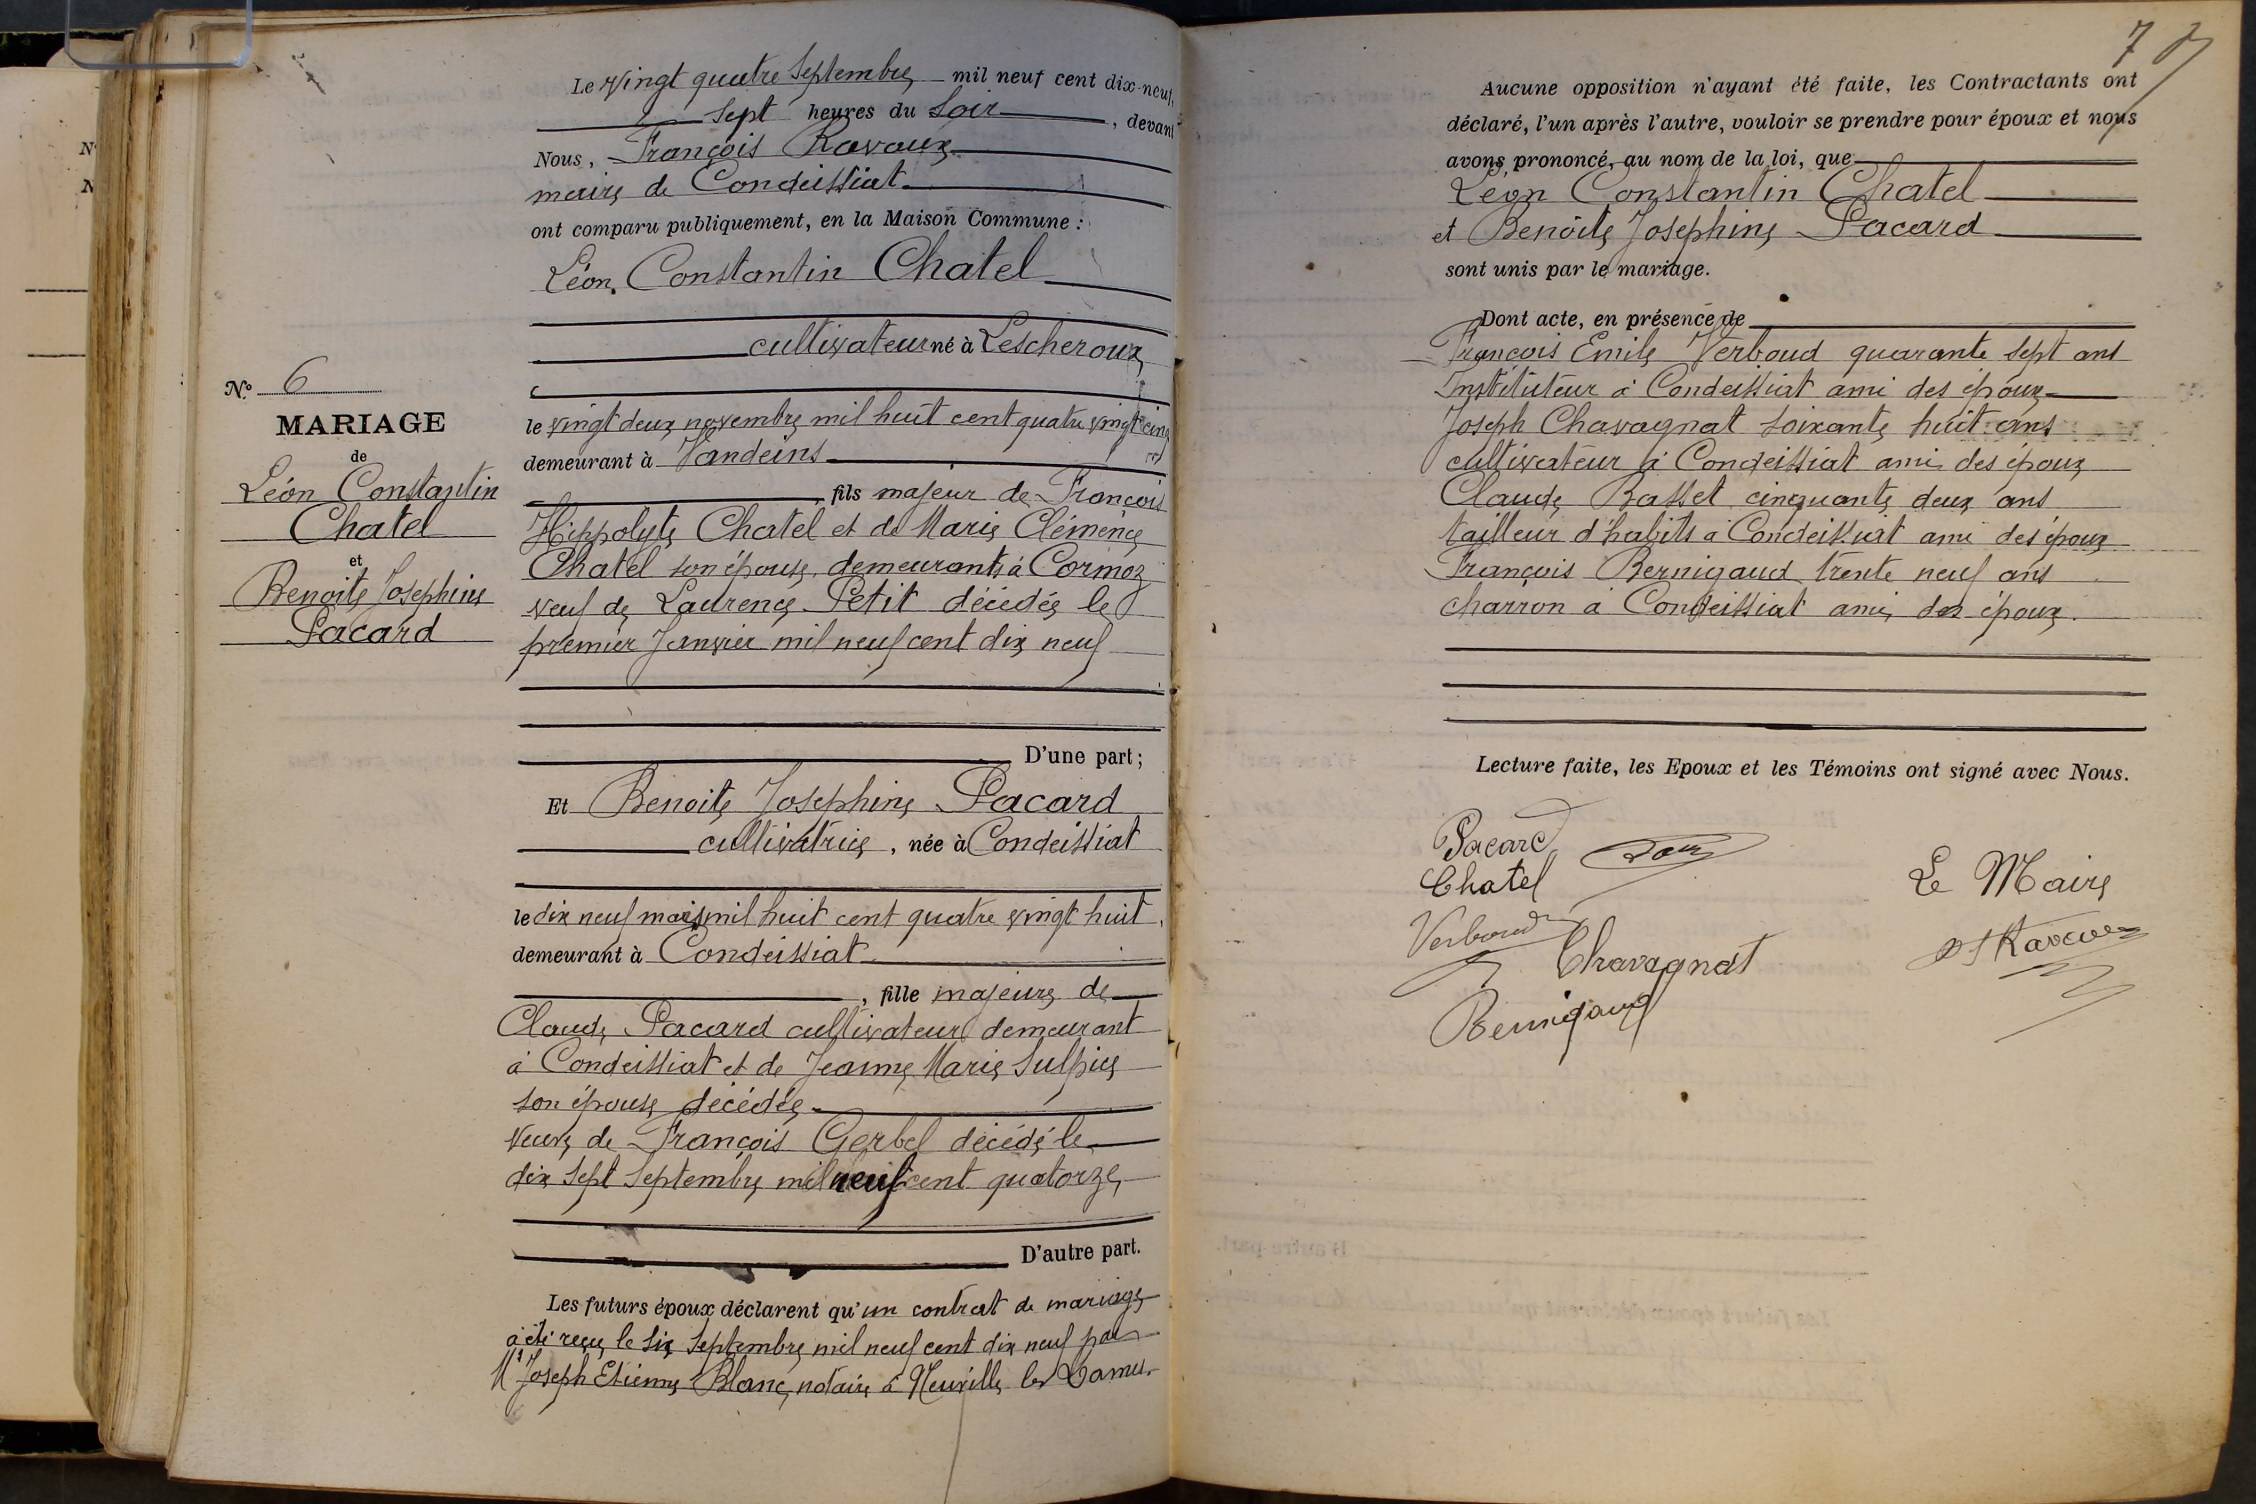 Le vingt quatre Septembre mil neuf cent dix-neuf,
sept heures du Soir, devant
Nous, François Ravoux
maire de Condeissiat
ont comparu publiquement, en la Maison Commune :
Léon Constantin Chatel
cultivateur né à Lescheroux
le vingt deux novembre mil huit cent quatre vingt cinq
demeurant à Vandeins
fils majeur de François
Hippolyte Chatel et de Marie Clémence
Chatel son épouse demeurants à Cormoz
veuf de Laurence Petit décédée le
premier Janvier mil neuf cent dix neuf
D'une part ;
Et Benoite Josephine Pacard
cultivatrice, née à Condeissiat
le dix neuf mars mil huit cent quatre vingt huit
demeurant à Condeissiat
, fille majeure de
Claude Pacard cultivateur demeurant
à Condeissiat et de Jeanne Marie Sulpice
son épouse décédée
veuve de François Gerbel décédé le
dix sept Septembre mil neuf cent quatorze
D'autre part.
Les futurs époux déclarent qu'un contrat de mariage
a été reçu le six Septembre mil neuf cent dix neuf par
Me Joseph Etienne Blanc, notaire à Neuville les Dames
No 6
MARIAGE
de
Léon Constantin
Chatel
et
Benoite Josephine
Pacard
7
Aucune opposition n'ayant été faite, les Contractants ont
déclaré, l'un après l'autre, vouloir se prendre pour époux et nous
avons prononcé, au nom de la loi, que
Léon Constantin Chatel
et Benoite Josephine Pacard
sont unis par le mariage.
Dont acte, en présence de
François Emile Verboud quarante sept ans
Instituteur à Condeissiat ami des époux
Joseph Chavagnat soixante huit ans
cultivateur à Condeissiat ami des époux
Claude Basset cinquante deux ans
tailleur d'habits à Condeissiat ami des époux
François Bernigaud trente neuf ans
charron à Condeissiat ami des époux.
Lecture faite, les Epoux et les Témoins ont signé avec Nous.
Pacard
Chatel
Verboud
Chavagnat
Bernigaud
Le Maire
Ravoux